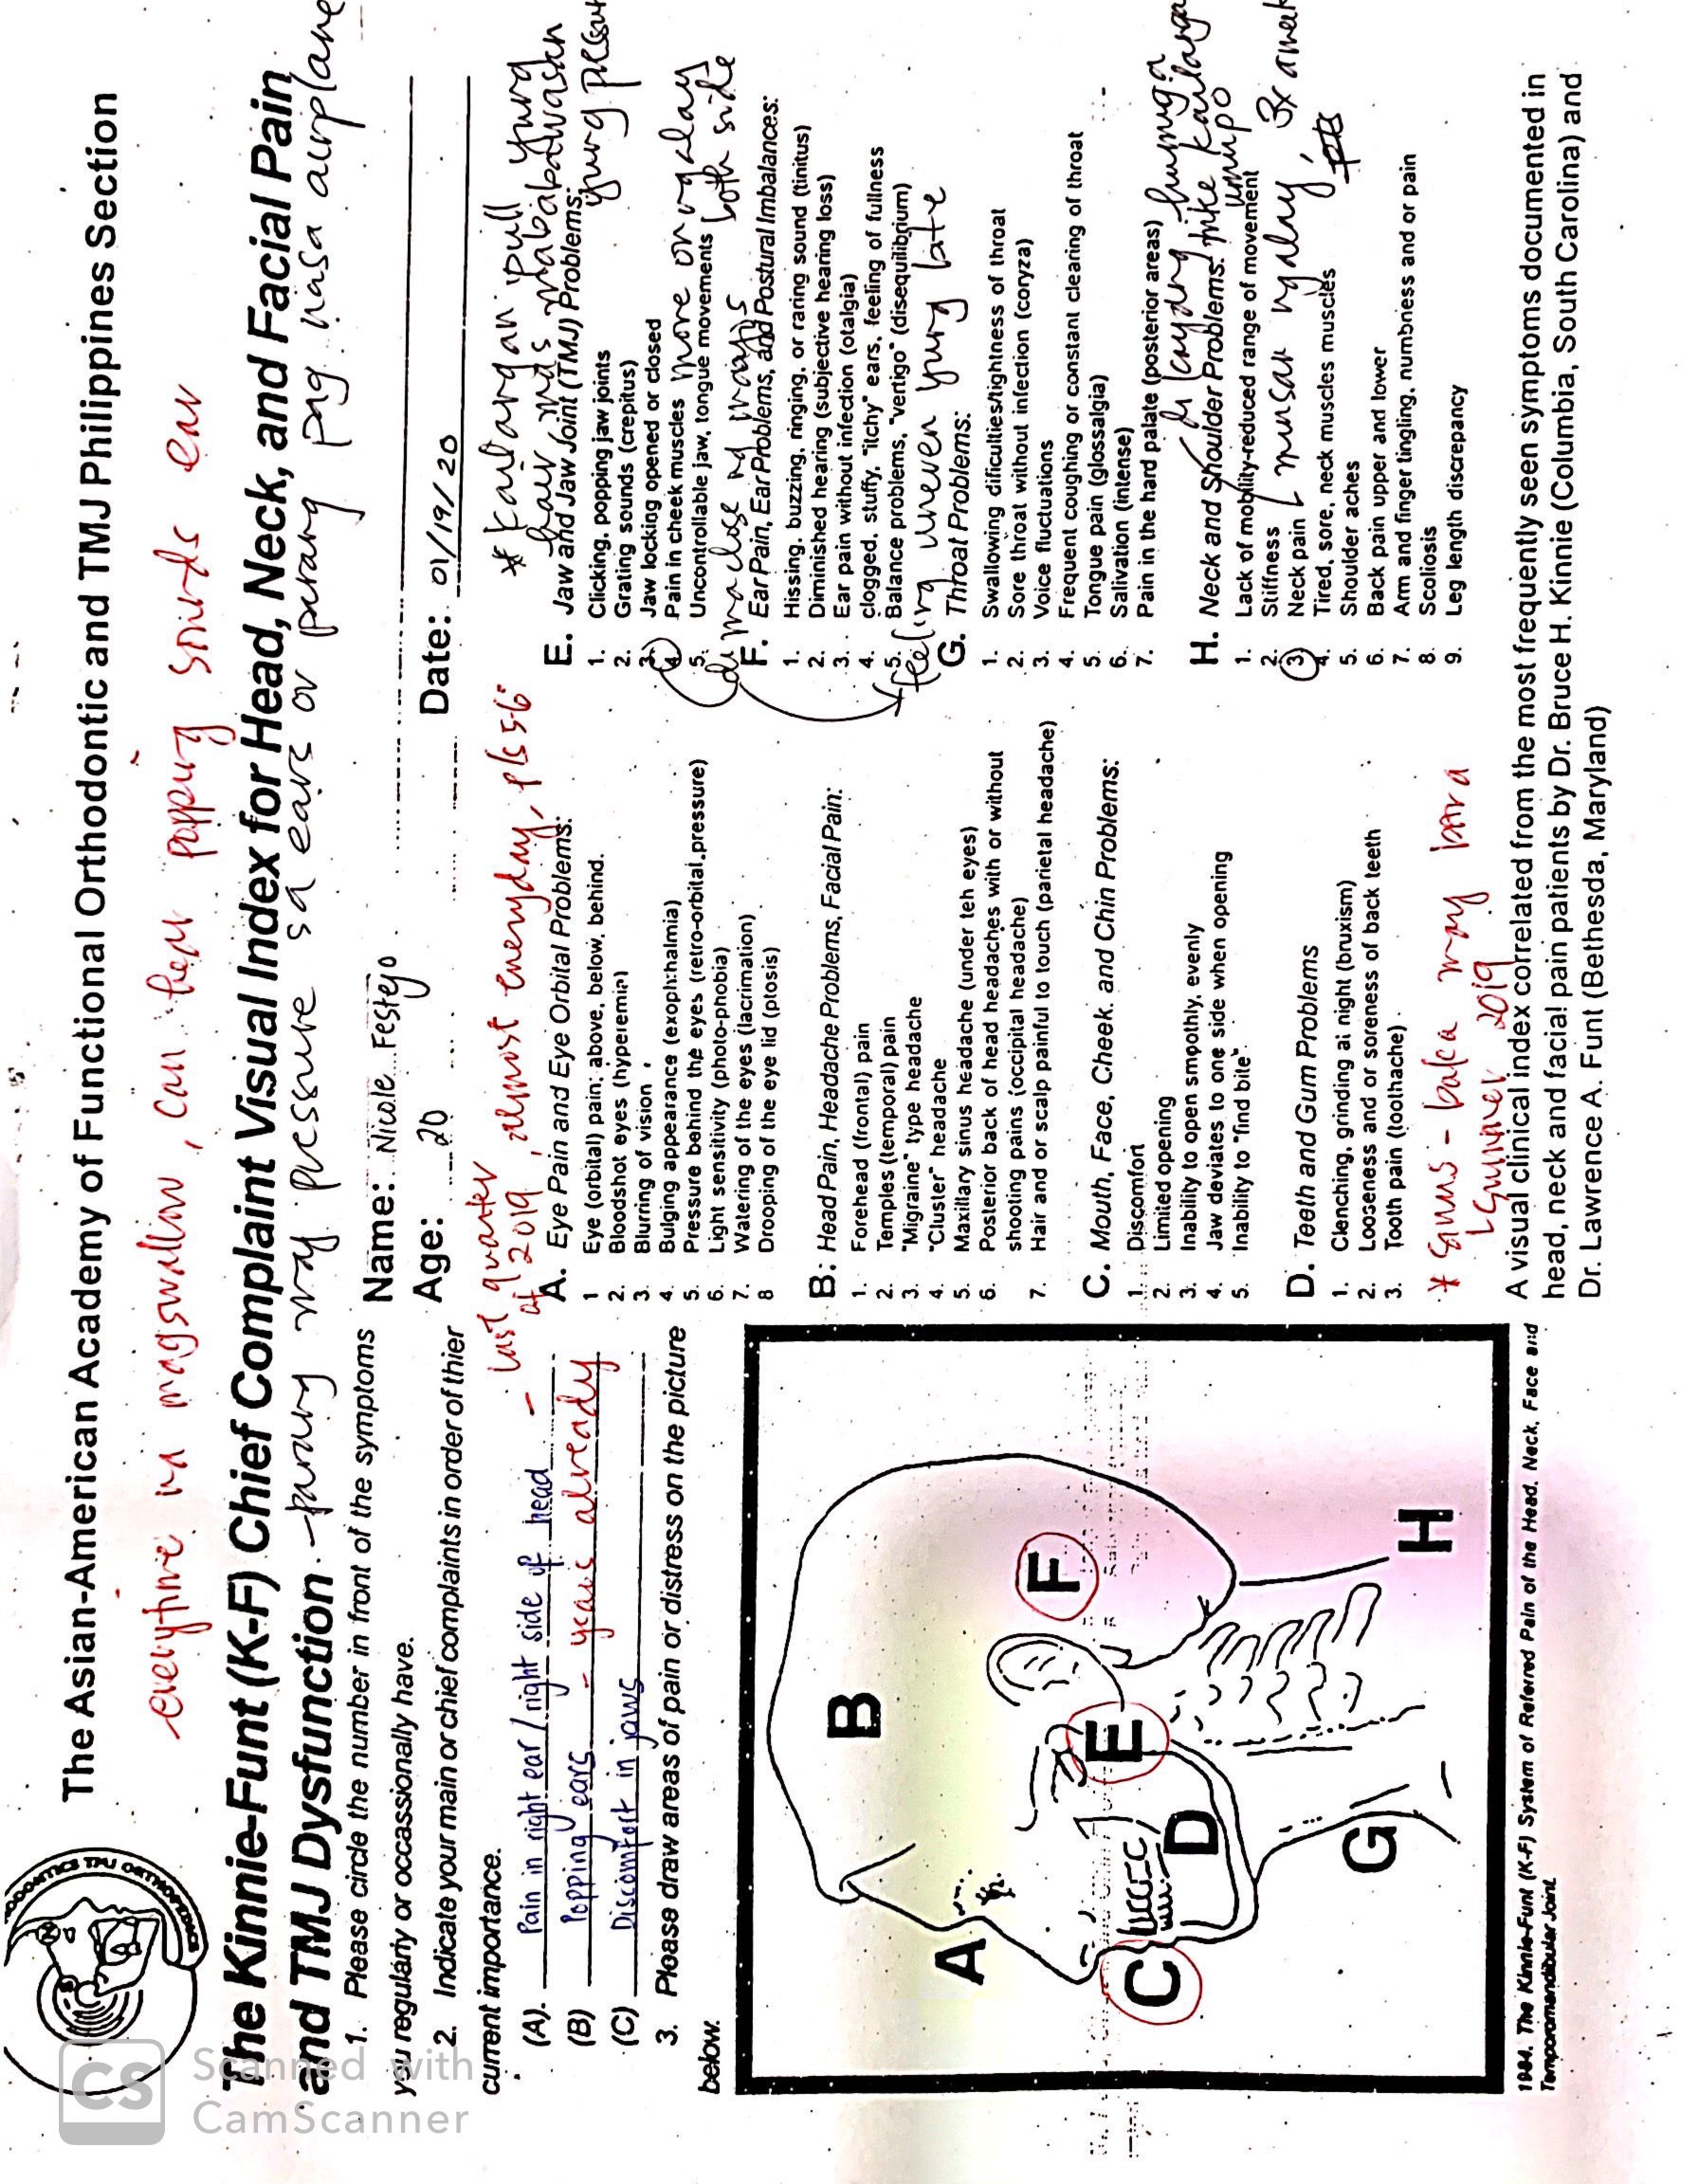 The Asian-American Academy of Functional Orthodontic and TMJ Philippines Section
everytime na magswallow, can hear popping sounds ear
The Kinnie-Funt (K-F) Chief Complaint Visual Index for Head, Neck, and Facial Pain
and TMJ Dysfunction
- parang may pressure sa ears or parang pag nasa airplane
1. Please circle the number in front of the symptoms
you regularly or occassionally have.
2. Indicate your main or chief complaints in order of thier
current importance.
(A). Pain in right ear / right side of head - last quarter of 2019, almost everyday, p/s 5-6
(B) Popping ears - years already
(C) Discomfort in jaws
3. Please draw areas of pain or distress on the picture
below.
A
B
C
D
E
F
G
H
1984. The Kinnie-Funt (K-F) System of Referred Pain of the Head, Neck, Face and
Temporomandibular Joint.
Name: Nicole Festejo
Age: 20
Date: 01/19/20
A. Eye Pain and Eye Orbital Problems:
1 Eye (orbital) pain; above, below, behind.
2. Bloodshot eyes (hyperemin)
3. Blurring of vision
4. Bulging appearance (exophthalmia)
5. Pressure behind the eyes (retro-orbital pressure)
6. Light sensitivity (photo-phobia)
7. Watering of the eyes (lacrimation)
8 Drooping of the eye lid (ptosis)
B: Head Pain, Headache Problems, Facial Pain:
1. Forehead (frontal) pain
2. Temples (temporal) pain
3. "Migraine" type headache
4. "Cluster" headache
5. Maxillary sinus headache (under teh eyes)
6. Posterior back of head headaches with or without
shooting pains (occipital headache)
7. Hair and or scalp painful to touch (parietal headache)
C. Mouth, Face, Cheek. and Chin Problems:
1. Discomfort
2. Limited opening
3. Inability to open smpothly, evenly
4. Jaw deviates to one side when opening
5. Inability to "find bite"
D. Teeth and Gum Problems
1. Clenching, grinding ai night (bruxism)
2. Looseness and or soreness of back teeth
3. Tooth pain (toothache)
* Gums - baka may
summer 2019
* kailangan ipull yung
hair mas mabawasan
yung pressure
E. Jaw and Jaw Joint (TMJ) Problems:
1. Clicking, popping jaw joints
2. Grating sounds (crepitus)
3. Jaw locking opened or closed
4. Pain in cheek muscles more on ngalay
5. Uncontrollable jaw, tongue movements both side
di maclose ng maayos
F. Ear Pain, Ear Problems, and Postural Imbalances:
1. Hissing, buzzing, ringing, or raring sound (tinitus)
2. Diminished hearing (subjective hearing loss)
3. Ear pain without infection (otalgia)
4. clogged, stuffy, "itchy" ears, feeling of fullness
5. Balance problems, "vertigo" (disequilibrium)
feeling uneven yung late
G. Throat Problems:
1. Swallowing dificulties/tightness of throat
2. Sore throat without infection (coryza)
3. Voice fluctuations
4. Frequent coughing or constant clearing of throat
5. Tongue pain (glossalgia)
6. Salivation (intense)
7. Pain in the hard palate (posterior areas)
di kayang humiga
like kailangan
umupo
H. Neck and Shoulder Problems:
1. Lack of mobility-reduced range of movement
2. Stiffness
3. Neck pain minsan ngalay, 3x a week
4. Tired, sore, neck muscles muscles
5. Shoulder aches
6. Back pain upper and lower
7. Arm and finger tingling, numbness and or pain
8. Scoliosis
9. Leg length discrepancy
A visual clinical index correlated from the most frequently seen symptoms documented in
head, neck and facial pain patients by Dr. Bruce H. Kinnie (Columbia, South Carolina) and
Dr. Lawrence A. Funt (Bethesda, Maryland)
CS
Scanned with
CamScanner